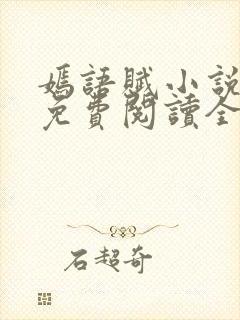 嫣語賦小說
免費閱讀全
石超奇